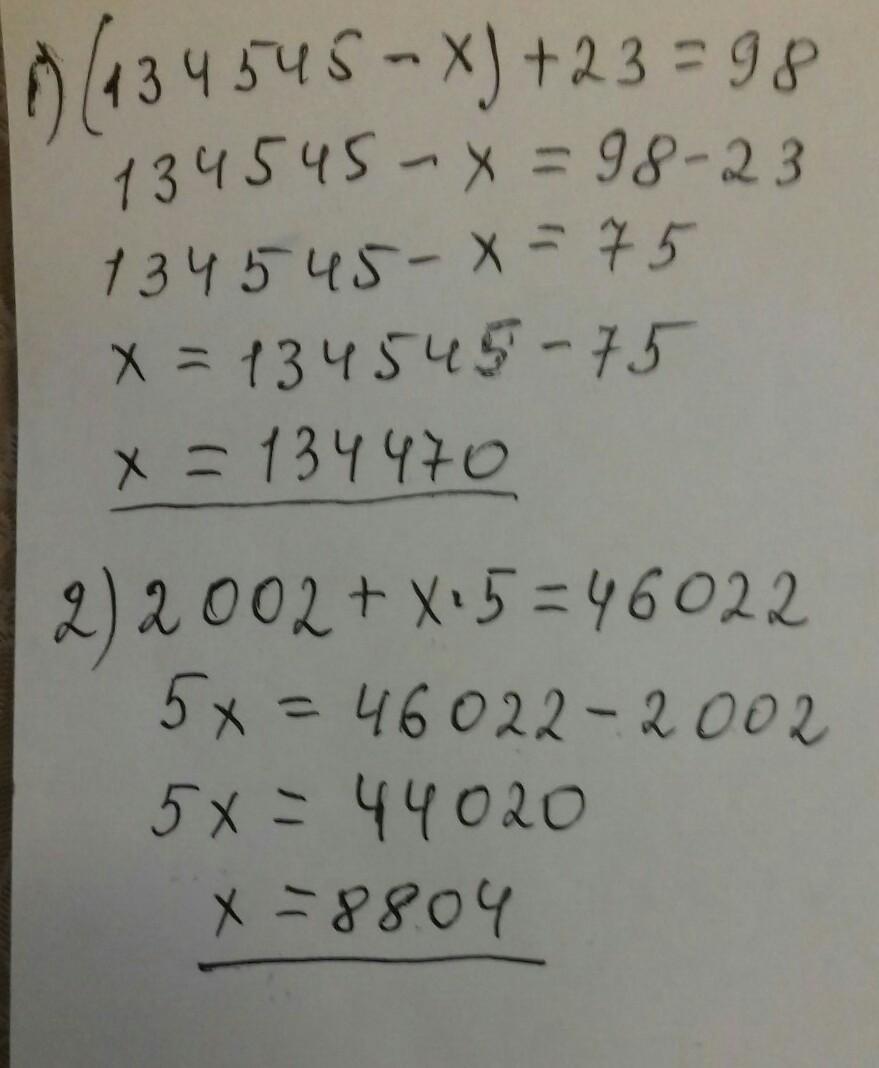 1) (134545 - x) + 23 = 98
134545 - x = 98 - 23
134545 - x = 75
x = 134545 - 75
x = 134470
2) 2002 + x · 5 = 46022
5x = 46022 - 2002
5x = 44020
x = 8804